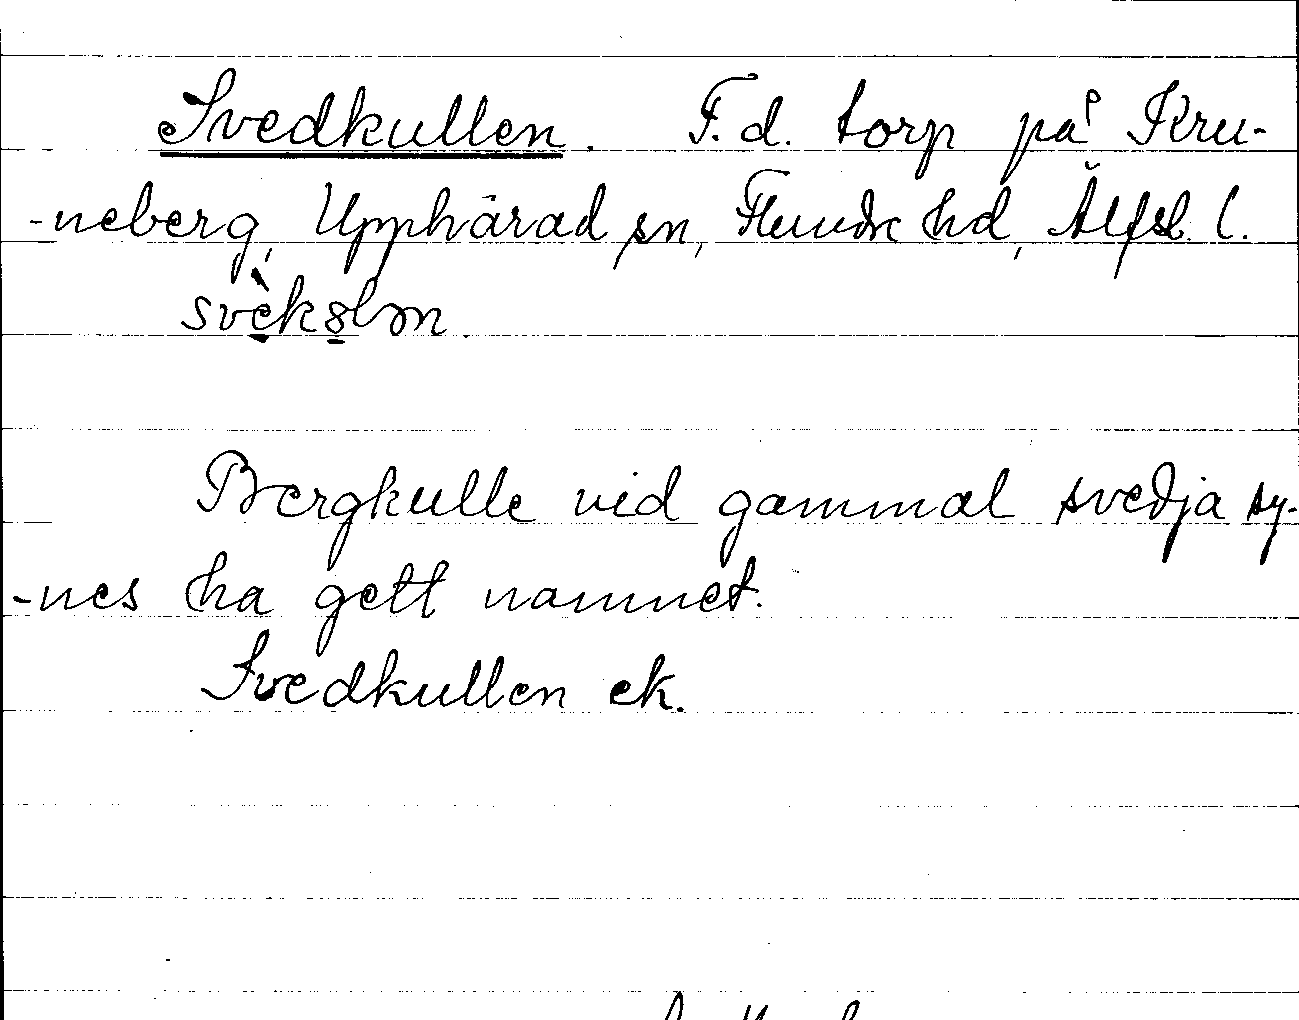 Svedkullen. F.d. torp på Kru-
-neberg, Upphärad sn, Flundre hd, Älfsb. l.
Bergkulle vid gammal svedja sy-
-nes ha gett namnet.
Svedkullen ek.